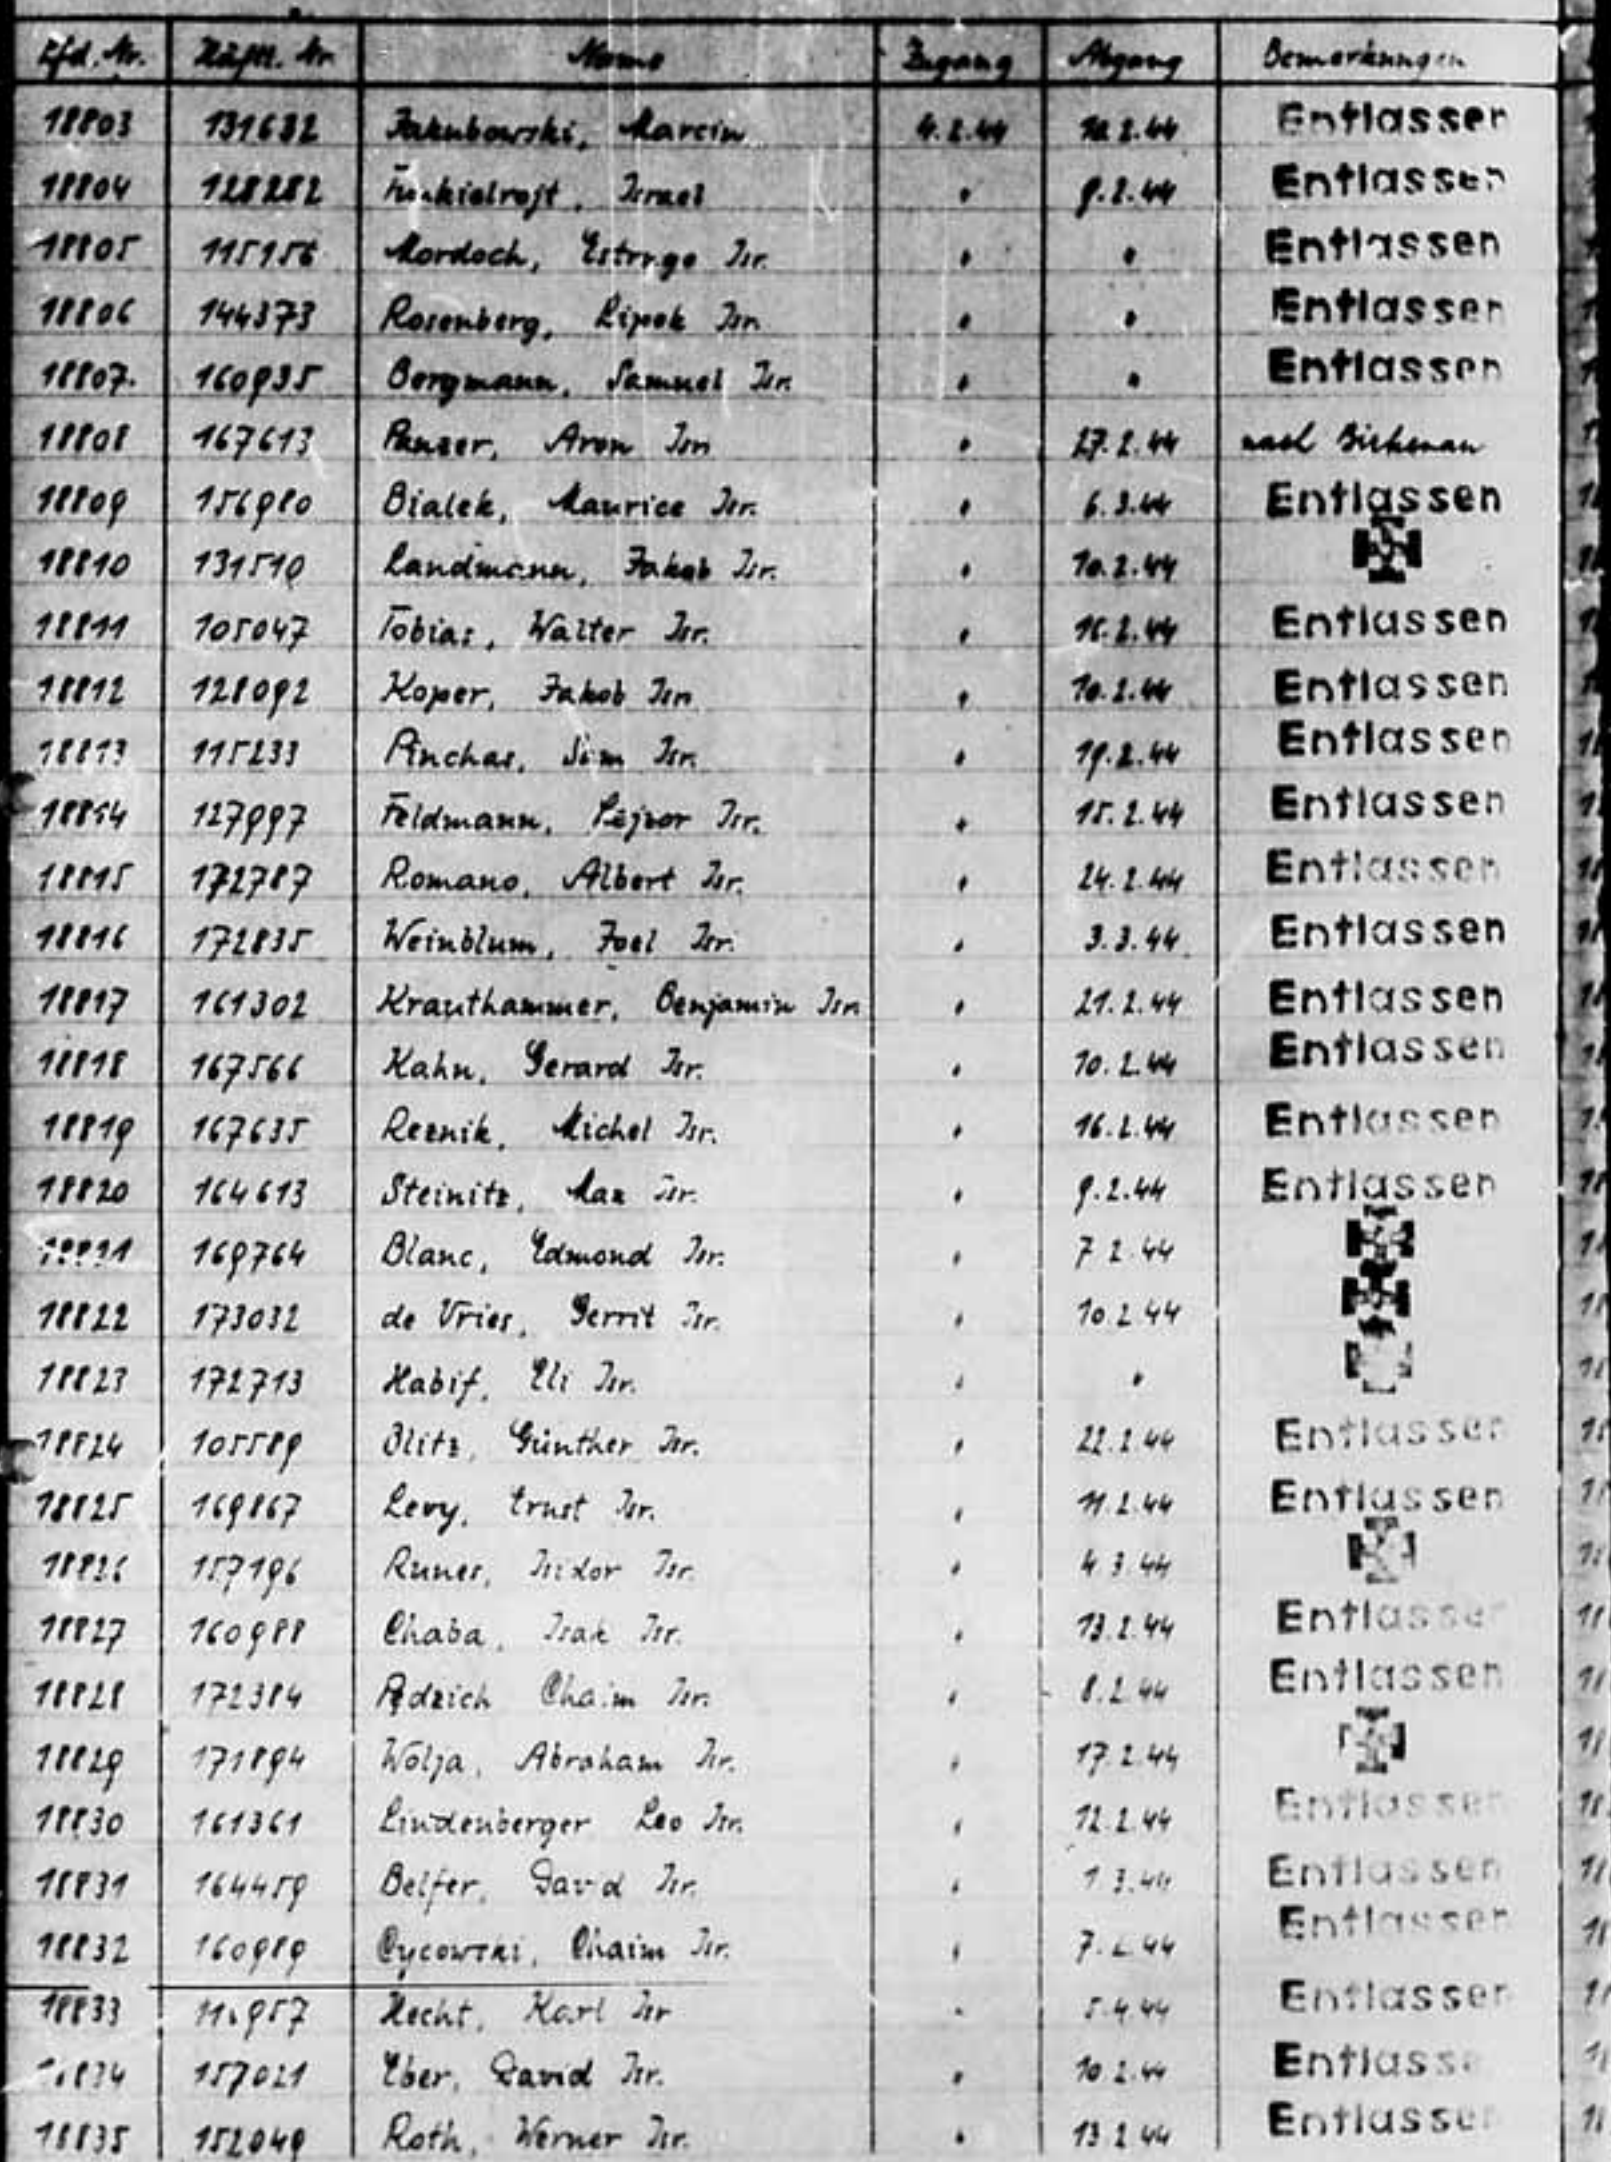 Lfd. Nr. Häftl. Nr. Name Zugang Abgang Bemerkungen
18803 131632 Jakubowski, Marcin 4.2.44 10.2.44 Entlassen
18804 128282 Israel " 9.2.44 Entlassen
18805 115156 Mordoch, Isr. " " Entlassen
18806 144373 Rosenberg, Lipek Isr. " " Entlassen
18807. 160935 Bergmann, Samuel Isr. " " Entlassen
18808 167613 Panzer, Aron Isr. " 27.2.44 nach Birkenau
18809 156980 Bialek, Maurice Isr. " 6.3.44 Entlassen
18810 131510 Landmann, Jakob Isr. " 10.2.44
18811 105047 Tobias, Walter Isr. " 16.2.44 Entlassen
18812 128092 Koper, Jakob Isr. " 10.2.44 Entlassen
18813 115233 Pinchas, Sim Isr. " 19.2.44 Entlassen
18814 127997 Feldmann, Lejzor Isr. " 15.2.44 Entlassen
18815 172787 Romano, Albert Isr. " 24.2.44 Entlassen
18816 172835 Weinblum, Joel Isr. " 3.3.44 Entlassen
18817 161302 Krauthammer, Benjamin Isr. " 21.2.44 Entlassen
18818 167566 Kahn, Gerard Isr. " 10.2.44 Entlassen
18819 167635 Reznik, Michel Isr. " 16.2.44 Entlassen
18820 164613 Steinitz, Max Isr. " 9.2.44 Entlassen
18821 169764 Blanc, Edmond Isr. " 7.2.44
18822 173032 de Vries, Gerrit Isr. " 10.2.44
18823 172713 Habif, Eli Isr. " "
18824 105589 Blitz, Günther Isr. " 22.2.44 Entlassen
18825 169867 Levy, Ernst Isr. " 11.2.44 Entlassen
18826 157196 Runes, Isidor Isr. " 4.3.44
18827 160988 Chaba, Isak Isr. " 13.2.44 Entlassen
18828 172384 Chaim Isr. " 8.2.44 Entlassen
18829 171894 Wolja, Abraham Isr. " 17.2.44
18830 161361 Lindenberger Leo Isr. " 12.2.44 Entlassen
18831 164459 Belfer, David Isr. " 1.3.44 Entlassen
18832 160989 Cycowski, Chaim Isr. " 7.2.44 Entlassen
18833 Hecht, Karl Isr " 5.4.44 Entlassen
18834 157021 Eber, David Isr. " 10.2.44 Entlassen
18835 152049 Roth, Werner Isr. " 13.2.44 Entlassen